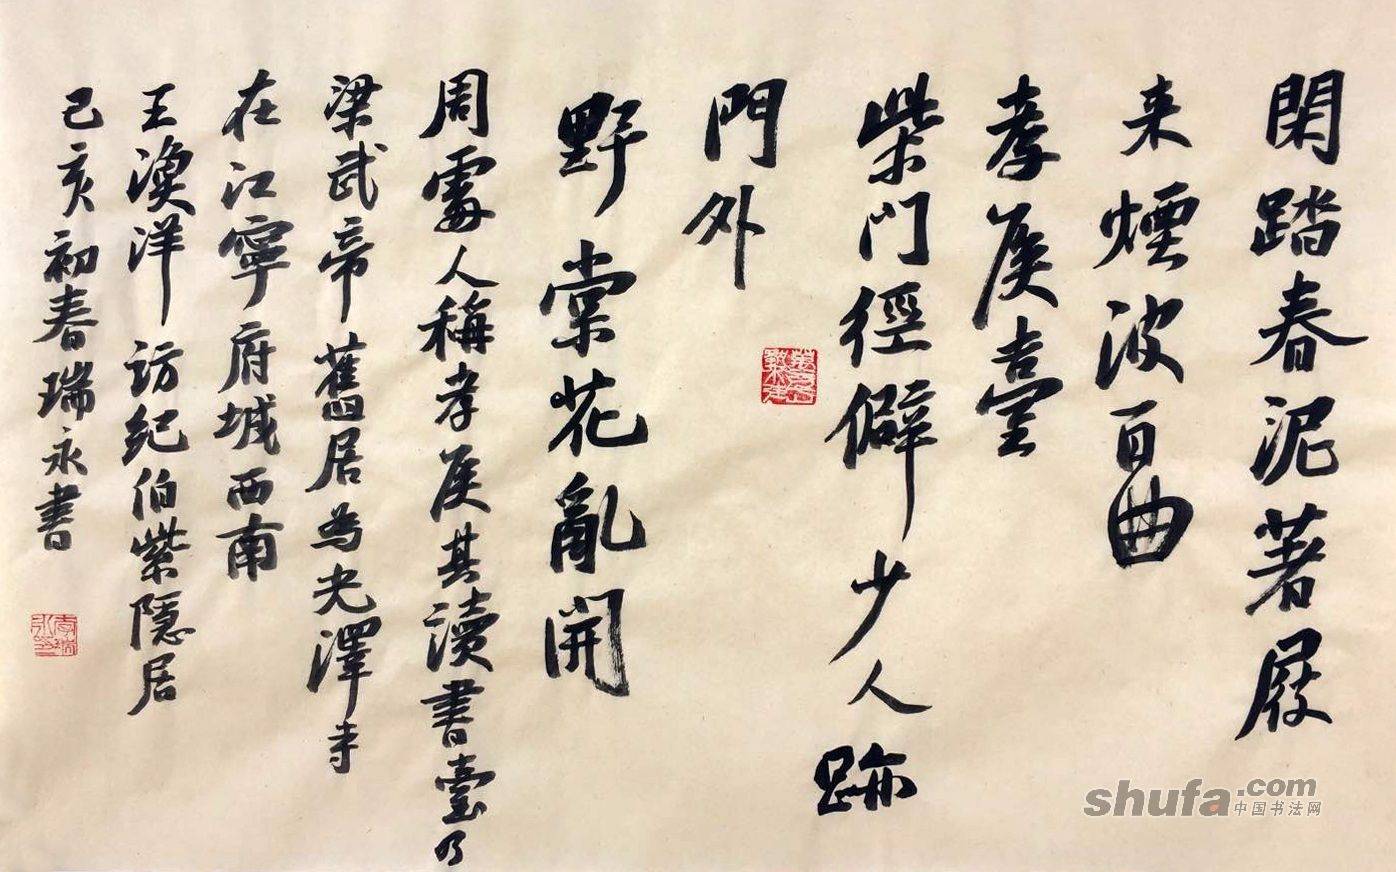 閑踏春泥著屐
来煙波百曲
孝矦臺
柴門徑僻少人
跡
門外
野棠花亂開
周處人稱孝矦其讀書臺乃
梁武帝舊居為光澤寺
在江寧府城西南
王漁洋訪紀伯紫隱居
己亥初春瑞永書
shufa.com
中国书法网